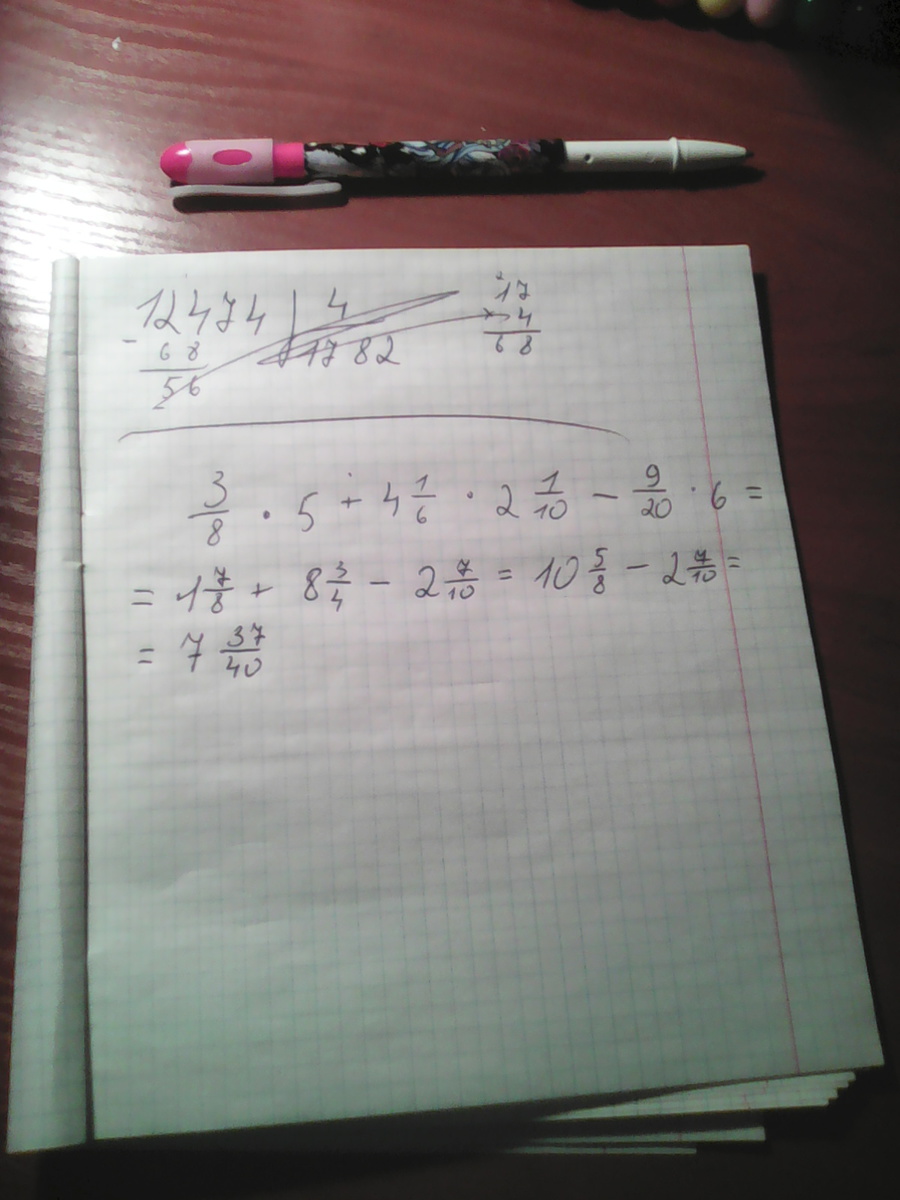 12474 | 4
- 68
56
1782
17
× 4
68
3/8 · 5 + 4 1/6 · 2 1/10 − 9/20 · 6 =
= 1 7/8 + 8 3/4 − 2 7/10 = 10 5/8 − 2 7/10 =
= 7 37/40